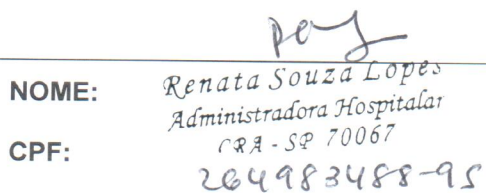 NOME: Renata Souza Lopes
Administradora Hospitalar
CRA - SP 70067
CPF: 264983488-95